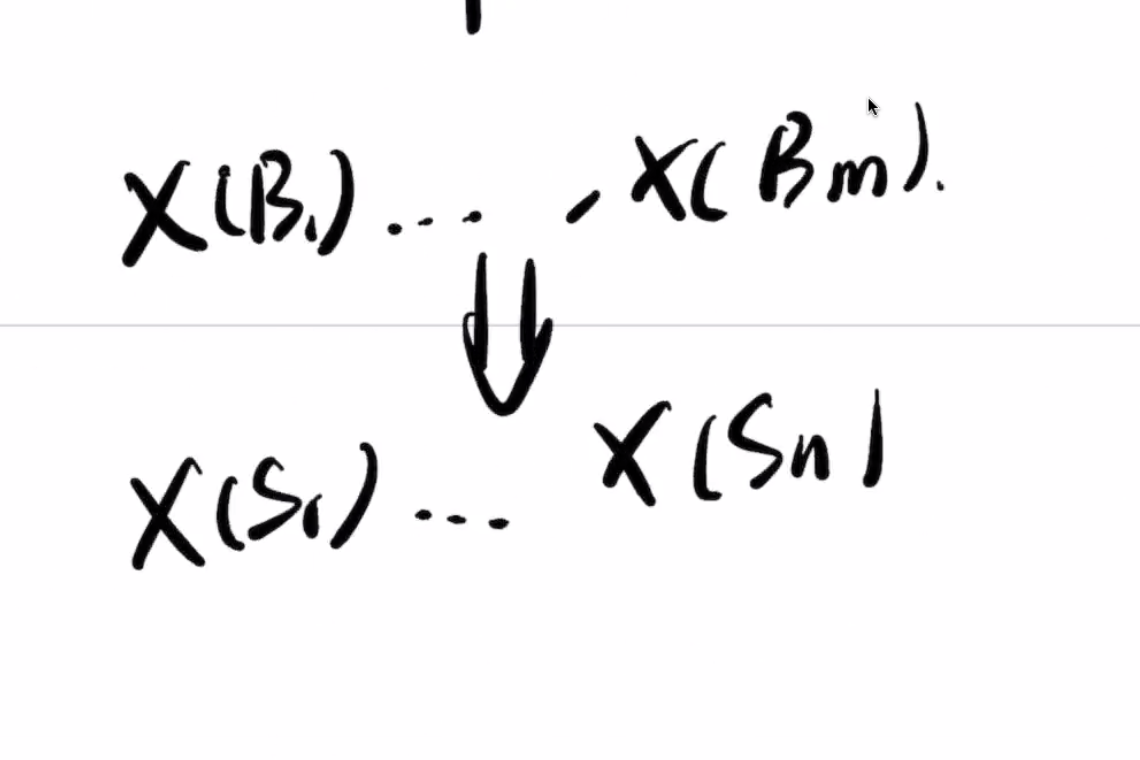 X(B₁) ... , X(Bm).
⇓
X(S₁) ... X(Sn)